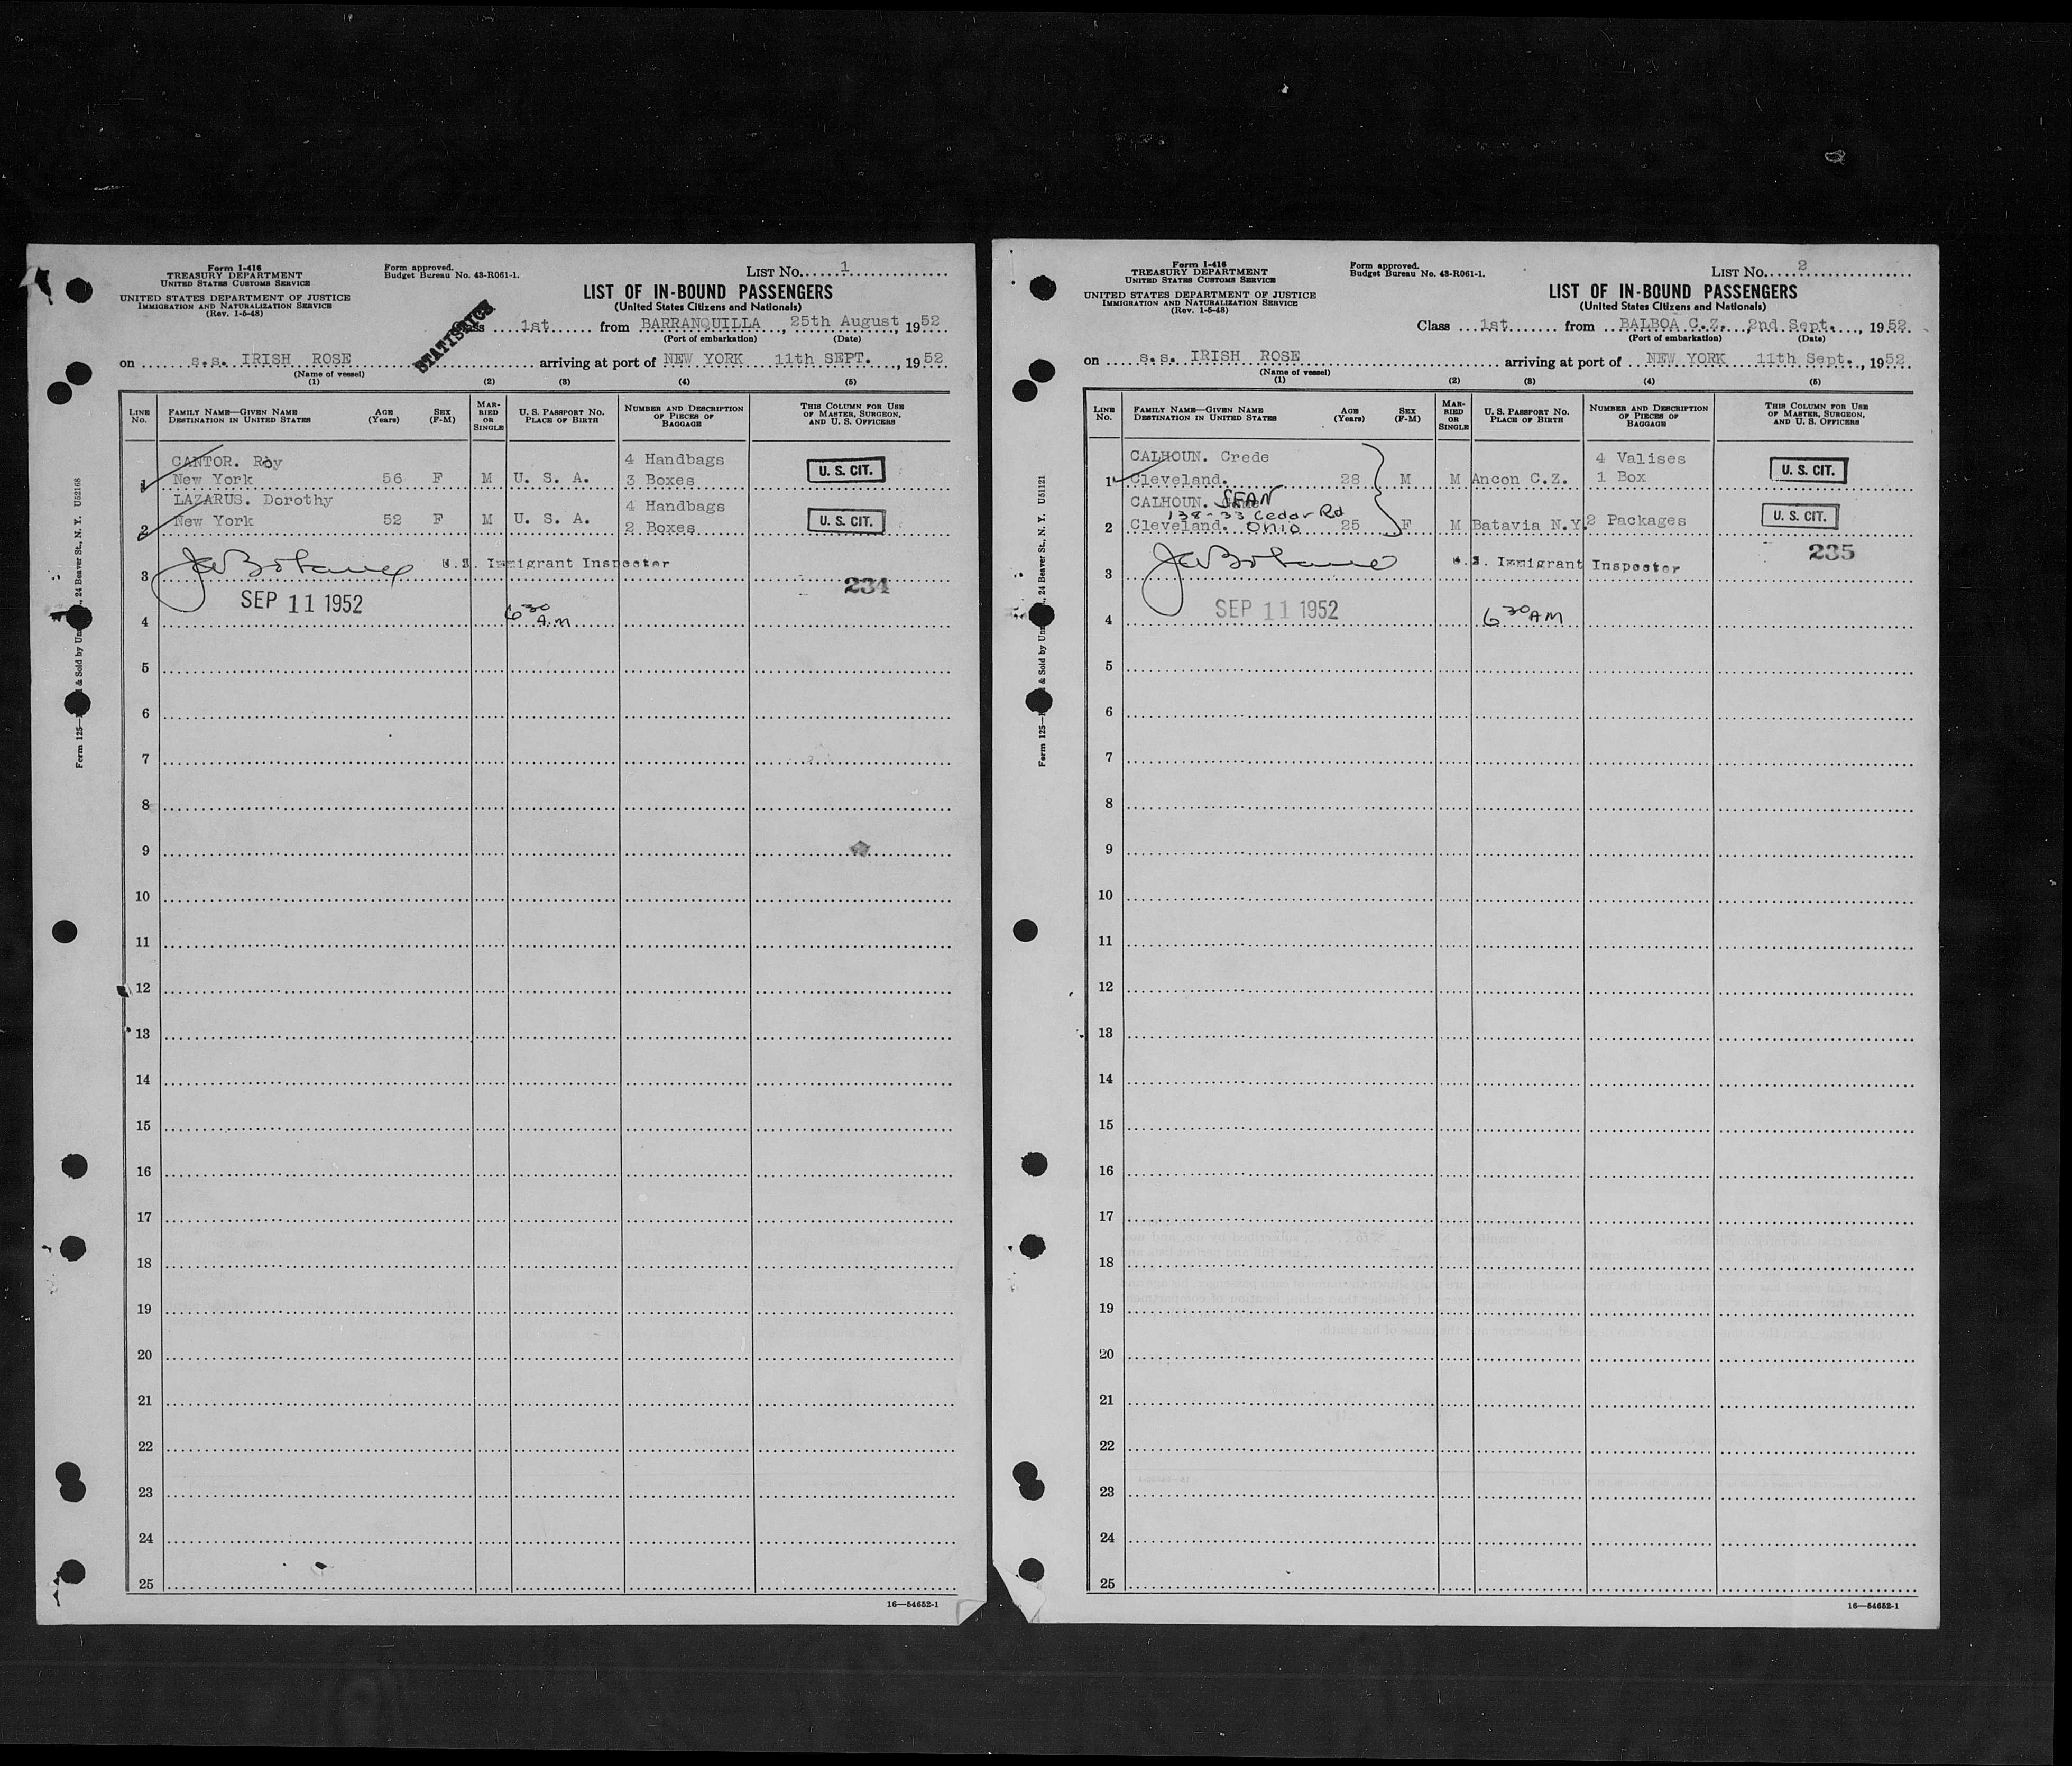 Form I-416
TREASURY DEPARTMENT
UNITED STATES CUSTOMS SERVICE
UNITED STATES DEPARTMENT OF JUSTICE
IMMIGRATION AND NATURALIZATION SERVICE
(Rev. 1-5-48)
Form approved.
Budget Bureau No. 43-R061-1.
LIST No. 1
LIST OF IN-BOUND PASSENGERS
(United States Citizens and Nationals)
STATISTICS
1st from BARRANQUILLA, 25th August 1952
(Port of embarkation) (Date)
on s.s. IRISH ROSE arriving at port of NEW YORK 11th SEPT., 1952
(Name of vessel)
(1) (2) (3) (4) (5)
LINE No. FAMILY NAME—GIVEN NAME DESTINATION IN UNITED STATES AGE (Years) SEX (F-M) MARRIED OR SINGLE U. S. PASSPORT No. PLACE OF BIRTH NUMBER AND DESCRIPTION OF PIECES OF BAGGAGE THIS COLUMN FOR USE OF MASTER, SURGEON, AND U. S. OFFICERS
CANTOR. Roy 4 Handbags
1 New York 56 F M U. S. A. 3 Boxes U. S. CIT.
LAZARUS. Dorothy 4 Handbags
2 New York 52 F M U. S. A. 2 Boxes U. S. CIT.
3 U.S. Immigrant Inspector
234
SEP 11 1952
4 6 30 A.M
5
6
7
8
9
10
11
12
13
14
15
16
17
18
19
20
21
22
23
24
25
16—54652-1
Form 125— & Sold by , 24 Beaver St., N. Y. U52168
Form I-416
TREASURY DEPARTMENT
UNITED STATES CUSTOMS SERVICE
UNITED STATES DEPARTMENT OF JUSTICE
IMMIGRATION AND NATURALIZATION SERVICE
(Rev. 1-5-48)
Form approved.
Budget Bureau No. 43-R061-1.
LIST No. 2
LIST OF IN-BOUND PASSENGERS
(United States Citizens and Nationals)
Class 1st from BALBOA C.Z. 2nd Sept., 1952
(Port of embarkation) (Date)
on s.s. IRISH ROSE arriving at port of NEW YORK 11th Sept., 1952
(Name of vessel)
(1) (2) (3) (4) (5)
LINE No. FAMILY NAME—GIVEN NAME DESTINATION IN UNITED STATES AGE (Years) SEX (F-M) MARRIED OR SINGLE U. S. PASSPORT No. PLACE OF BIRTH NUMBER AND DESCRIPTION OF PIECES OF BAGGAGE THIS COLUMN FOR USE OF MASTER, SURGEON, AND U. S. OFFICERS
CALHOUN. Crede 4 Valises
1 Cleveland. 28 M M Ancon C.Z. 1 Box U. S. CIT.
CALHOUN. SEAN
138-33 Cedar Rd
2 Cleveland. OHIO 25 F M Batavia N.Y. 2 Packages U. S. CIT.
235
3 U.S. Immigrant Inspector
SEP 11 1952
4 6 30 AM
5
6
7
8
9
10
11
12
13
14
15
16
17
18
19
20
21
22
23
24
25
16—54652-1
Form 125— & Sold by , 24 Beaver St., N. Y. U51121